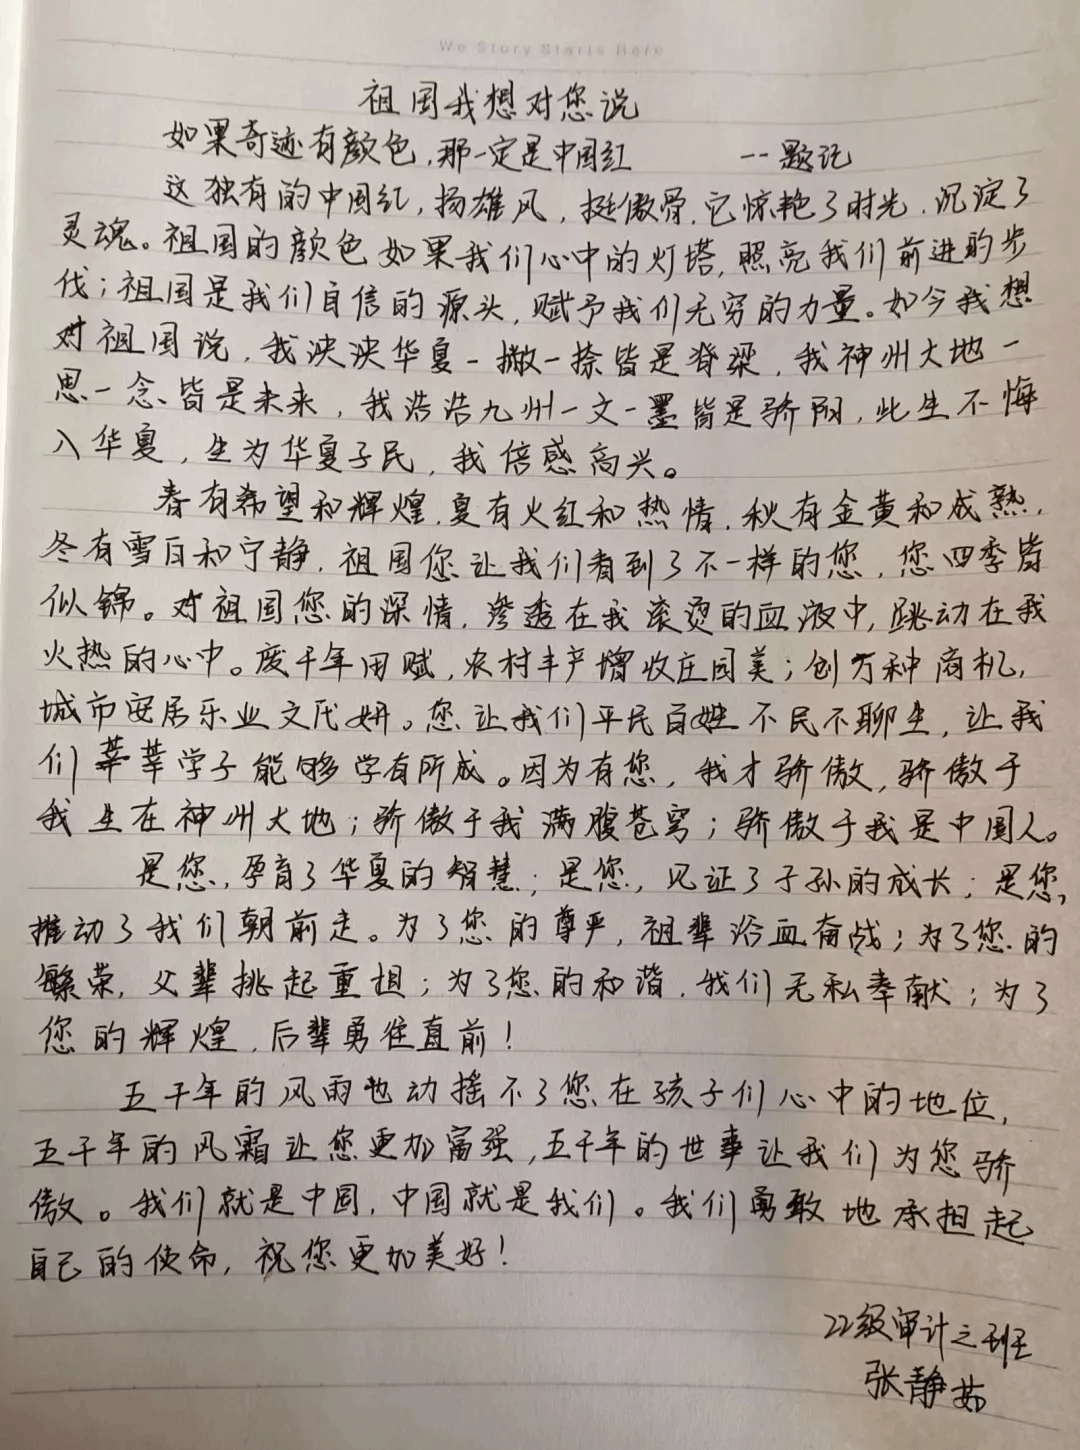 We Story Starts Here
祖国我想对您说
如果奇迹有颜色,那一定是中国红 --题记
这独有的中国红,扬雄风,挺傲骨,它惊艳了时光,沉淀了
灵魂。祖国的颜色如果我们心中的灯塔,照亮我们前进的步
伐;祖国是我们自信的源头,赋予我们无穷的力量。如今我想
对祖国说,我泱泱华夏一撇一捺皆是脊梁,我神州大地一
思一念皆是未来,我浩浩九州一文一墨皆是骄阳,此生不悔
入华夏,生为华夏子民,我倍感高兴。
春有希望和辉煌,夏有火红和热情,秋有金黄和成熟,
冬有雪白和宁静,祖国您让我们看到了不一样的您,您四季皆
似锦。对祖国您的深情,渗透在我滚烫的血液中,跳动在我
火热的心中。废千年田赋,农村丰产增收庄园美;创万种商机,
城市安居乐业文代妍。您让我们平民百姓不民不聊生,让我
们莘莘学子能够学有所成。因为有您,我才骄傲,骄傲于
我生在神州大地;骄傲于我满腹苍穹;骄傲于我是中国人。
是您,孕育了华夏的智慧;是您,见证了子孙的成长;是您,
推动了我们朝前走。为了您的尊严,祖辈浴血奋战;为了您的
繁荣,父辈挑起重担;为了您的和谐,我们无私奉献;为了
您的辉煌,后辈勇往直前!
五千年的风雨也动摇不了您在孩子们心中的地位,
五千年的风霜让您更加富强,五千年的世事让我们为您骄
傲。我们就是中国,中国就是我们。我们勇敢地承担起
自己的使命,祝您更加美好!
22级审计之班
张静茹